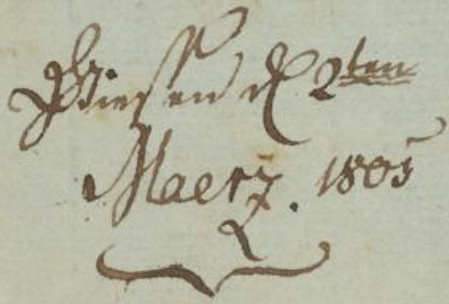 Giesen d 2ten
Maerz. 1805